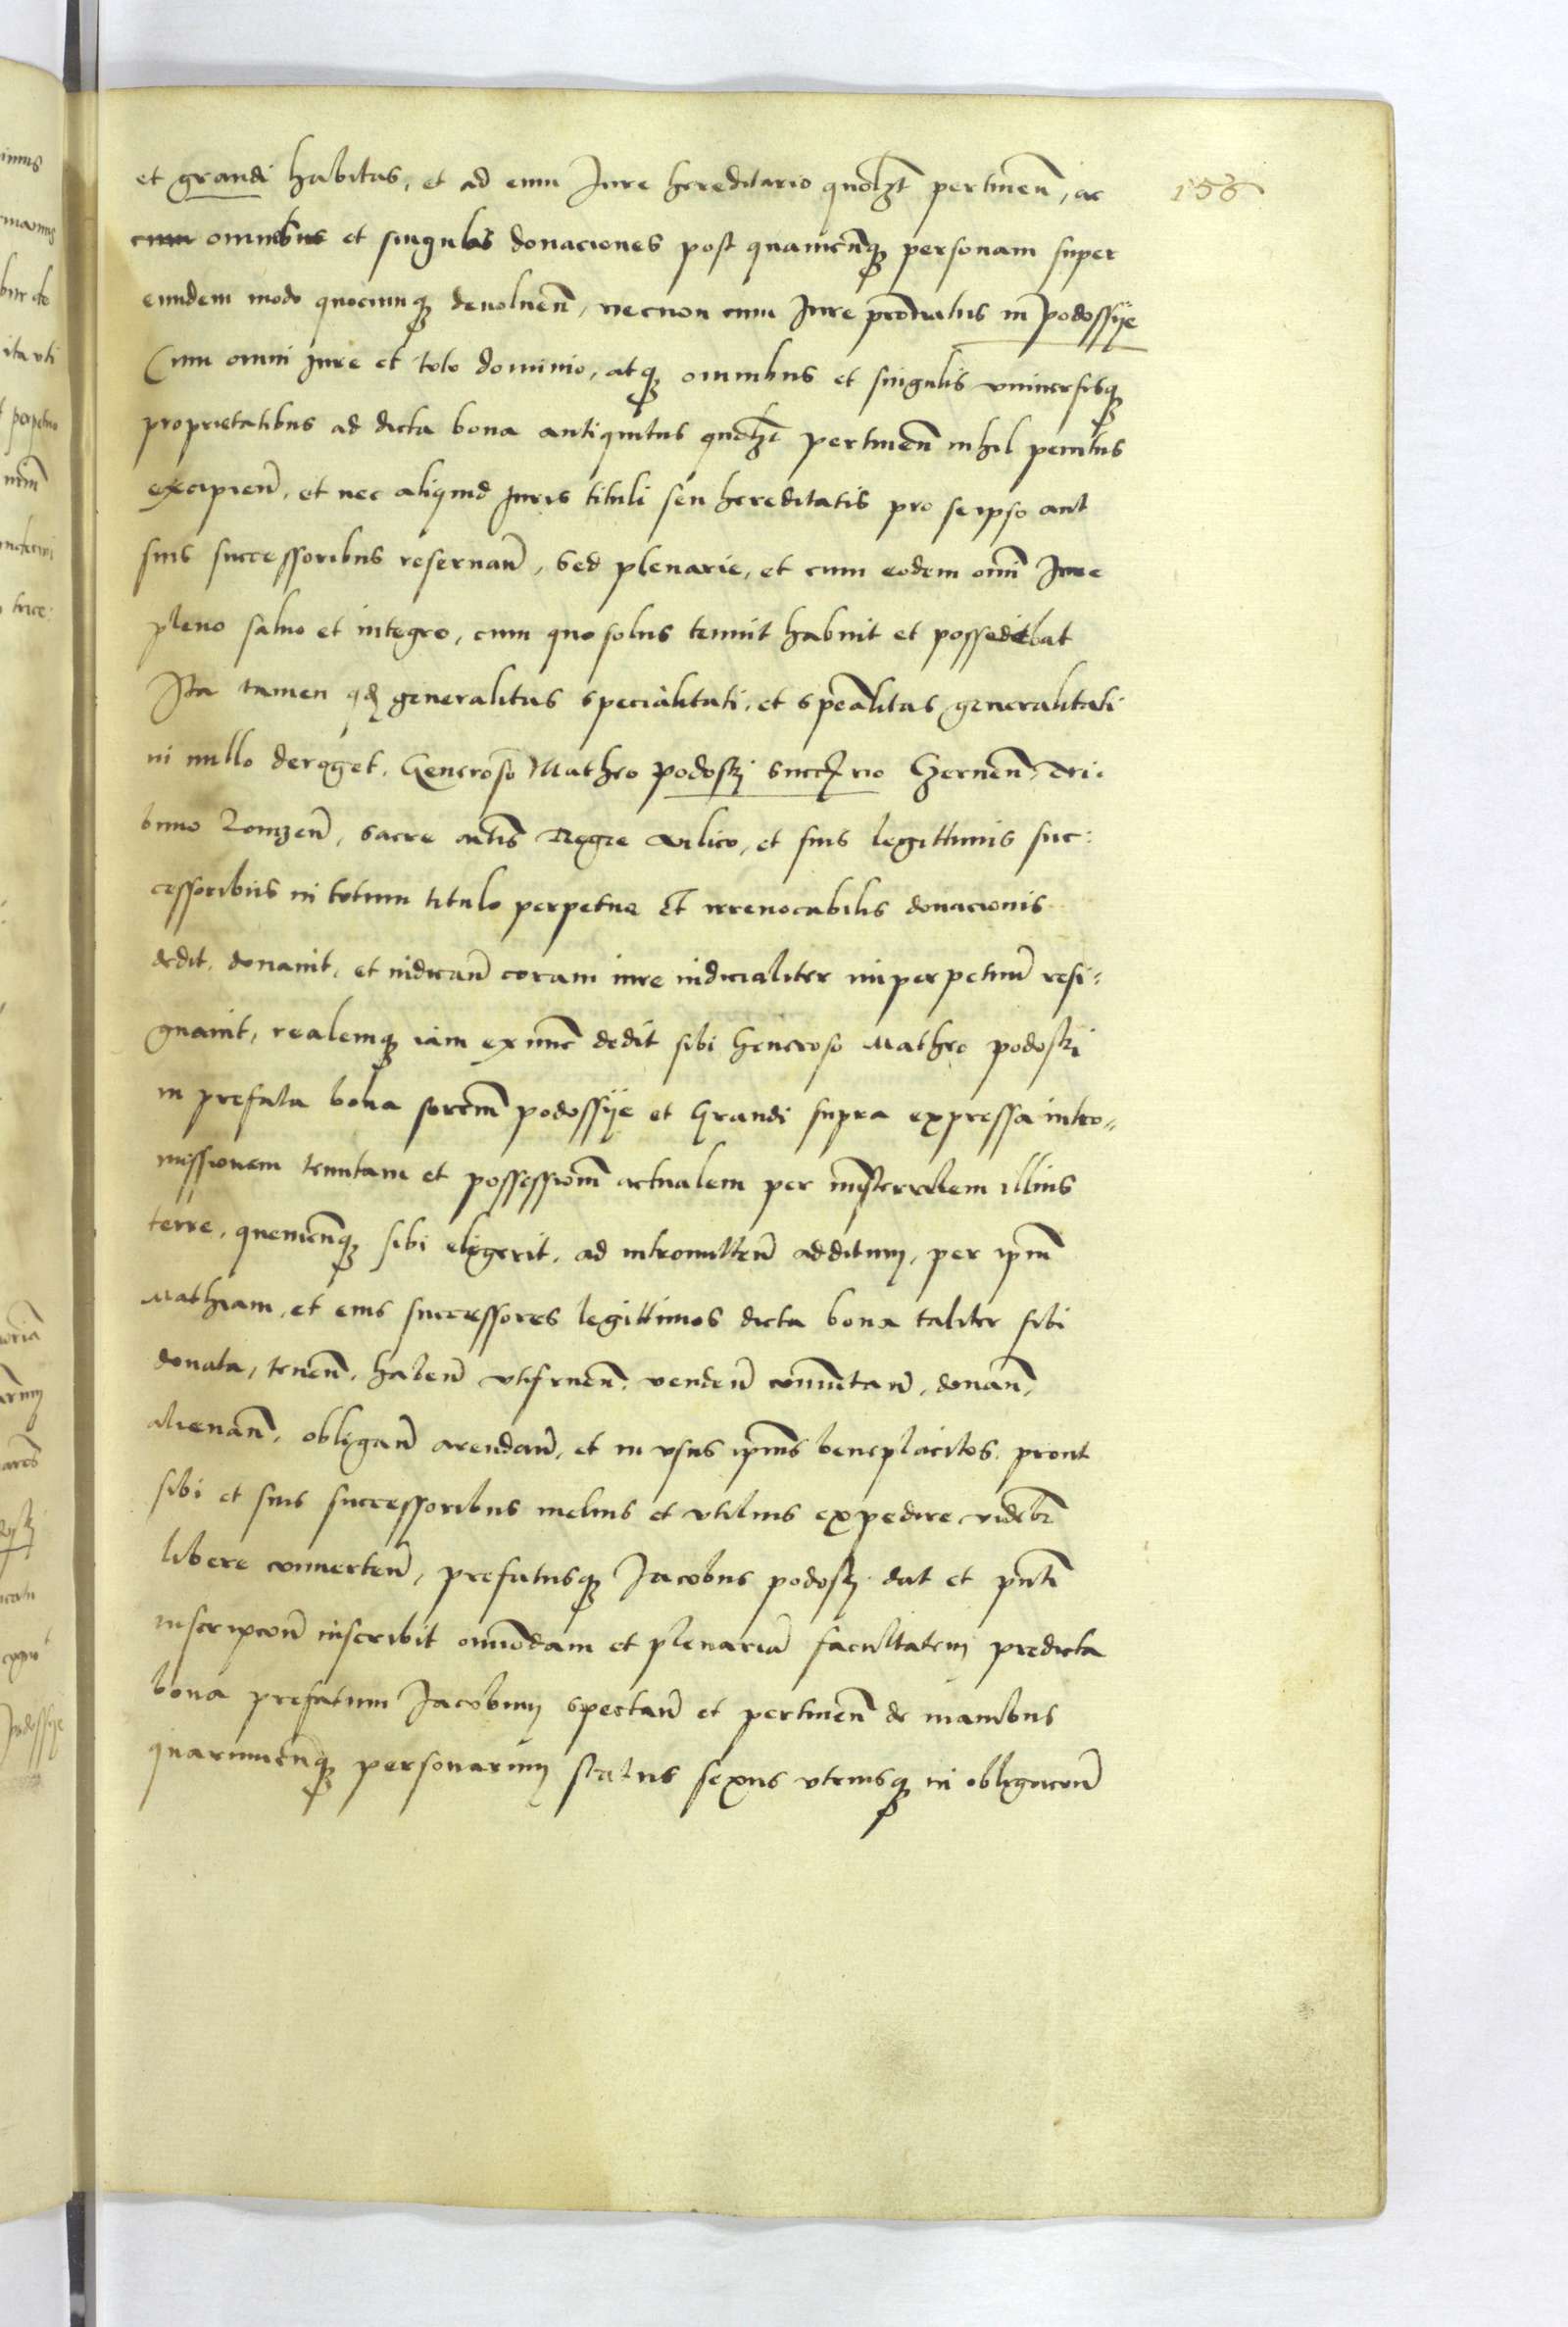 et grandi habitas, et ad eum Jure hereditario quol3t pertinen̄, ac
153
cum omnibus et singulas donaciones post quamcūq₃ personam super
eundem modo quocunq₃ devoluen̄, necnon cum Jure prōnatus in Podossÿe
Cum omni Jure et toto dominio, atq₃ omnibus et singulis vniuersisq₃
proprietatibus ad dicta bona antiquitus quol3t pertinen̄ nihil penitus
excipien̄, et nec aliquid Juris tituli seu hereditatis pro se ipso aut
suis successoribus reseruan̄, Sed plenarie, et cum eodem om̄i Jure
pleno saluo et integro, cum quo solus tenuit habuit et possedebat
Ita tamen qđ generalitas specialitati, et spēalitas generalitati
in nullo deroget, Generoso Matheo Podoski succam̄rio Czernen̄, Tri-
buno Lomzen̄, Sacre Mtīs Regie Aulico, et suis legittimis suc:
cessoribus in totum titulo perpetue Et irreuocabilis donacionis
dedit, donauit, et iudican̄ coram iure iudicialiter inperpetuū resi:
gnauit, realemq₃ iam ex nūc dedit sibi Generoso Matheo podoski
in prefata bona sortem̄ podossÿe et Grandi supra expressa intro-
missionem tenutam et possessionē actualem per mīsterialem illius
terre, quemcūq₃ sibi eligerit, ad intromitten̄ additum, per ip̄m
Mathiam, et eius successores legittimos dicta bona taliter sibi
donata, tenen̄, haben̄ vtifruen̄, venden̄ cōmutan̄, donan̄,
alienan̄, obligan̄ arendan̄, et in vsus ip̄ius beneplacitos, prout
sibi et suis successoribus melius et vtilius expedire videbr̄
libere conuerten̄, prefatusq₃ Jacobus podoski dat et pn̄ti
inscripcōn̄ inscribit omn̄odam et plenariā facultatem predicta
bona prefatum Jacobum spectan̄ et pertinen̄ de manibus
quarumcūq₃ personarum status sexus vtriusq₃ in obligacōn̄